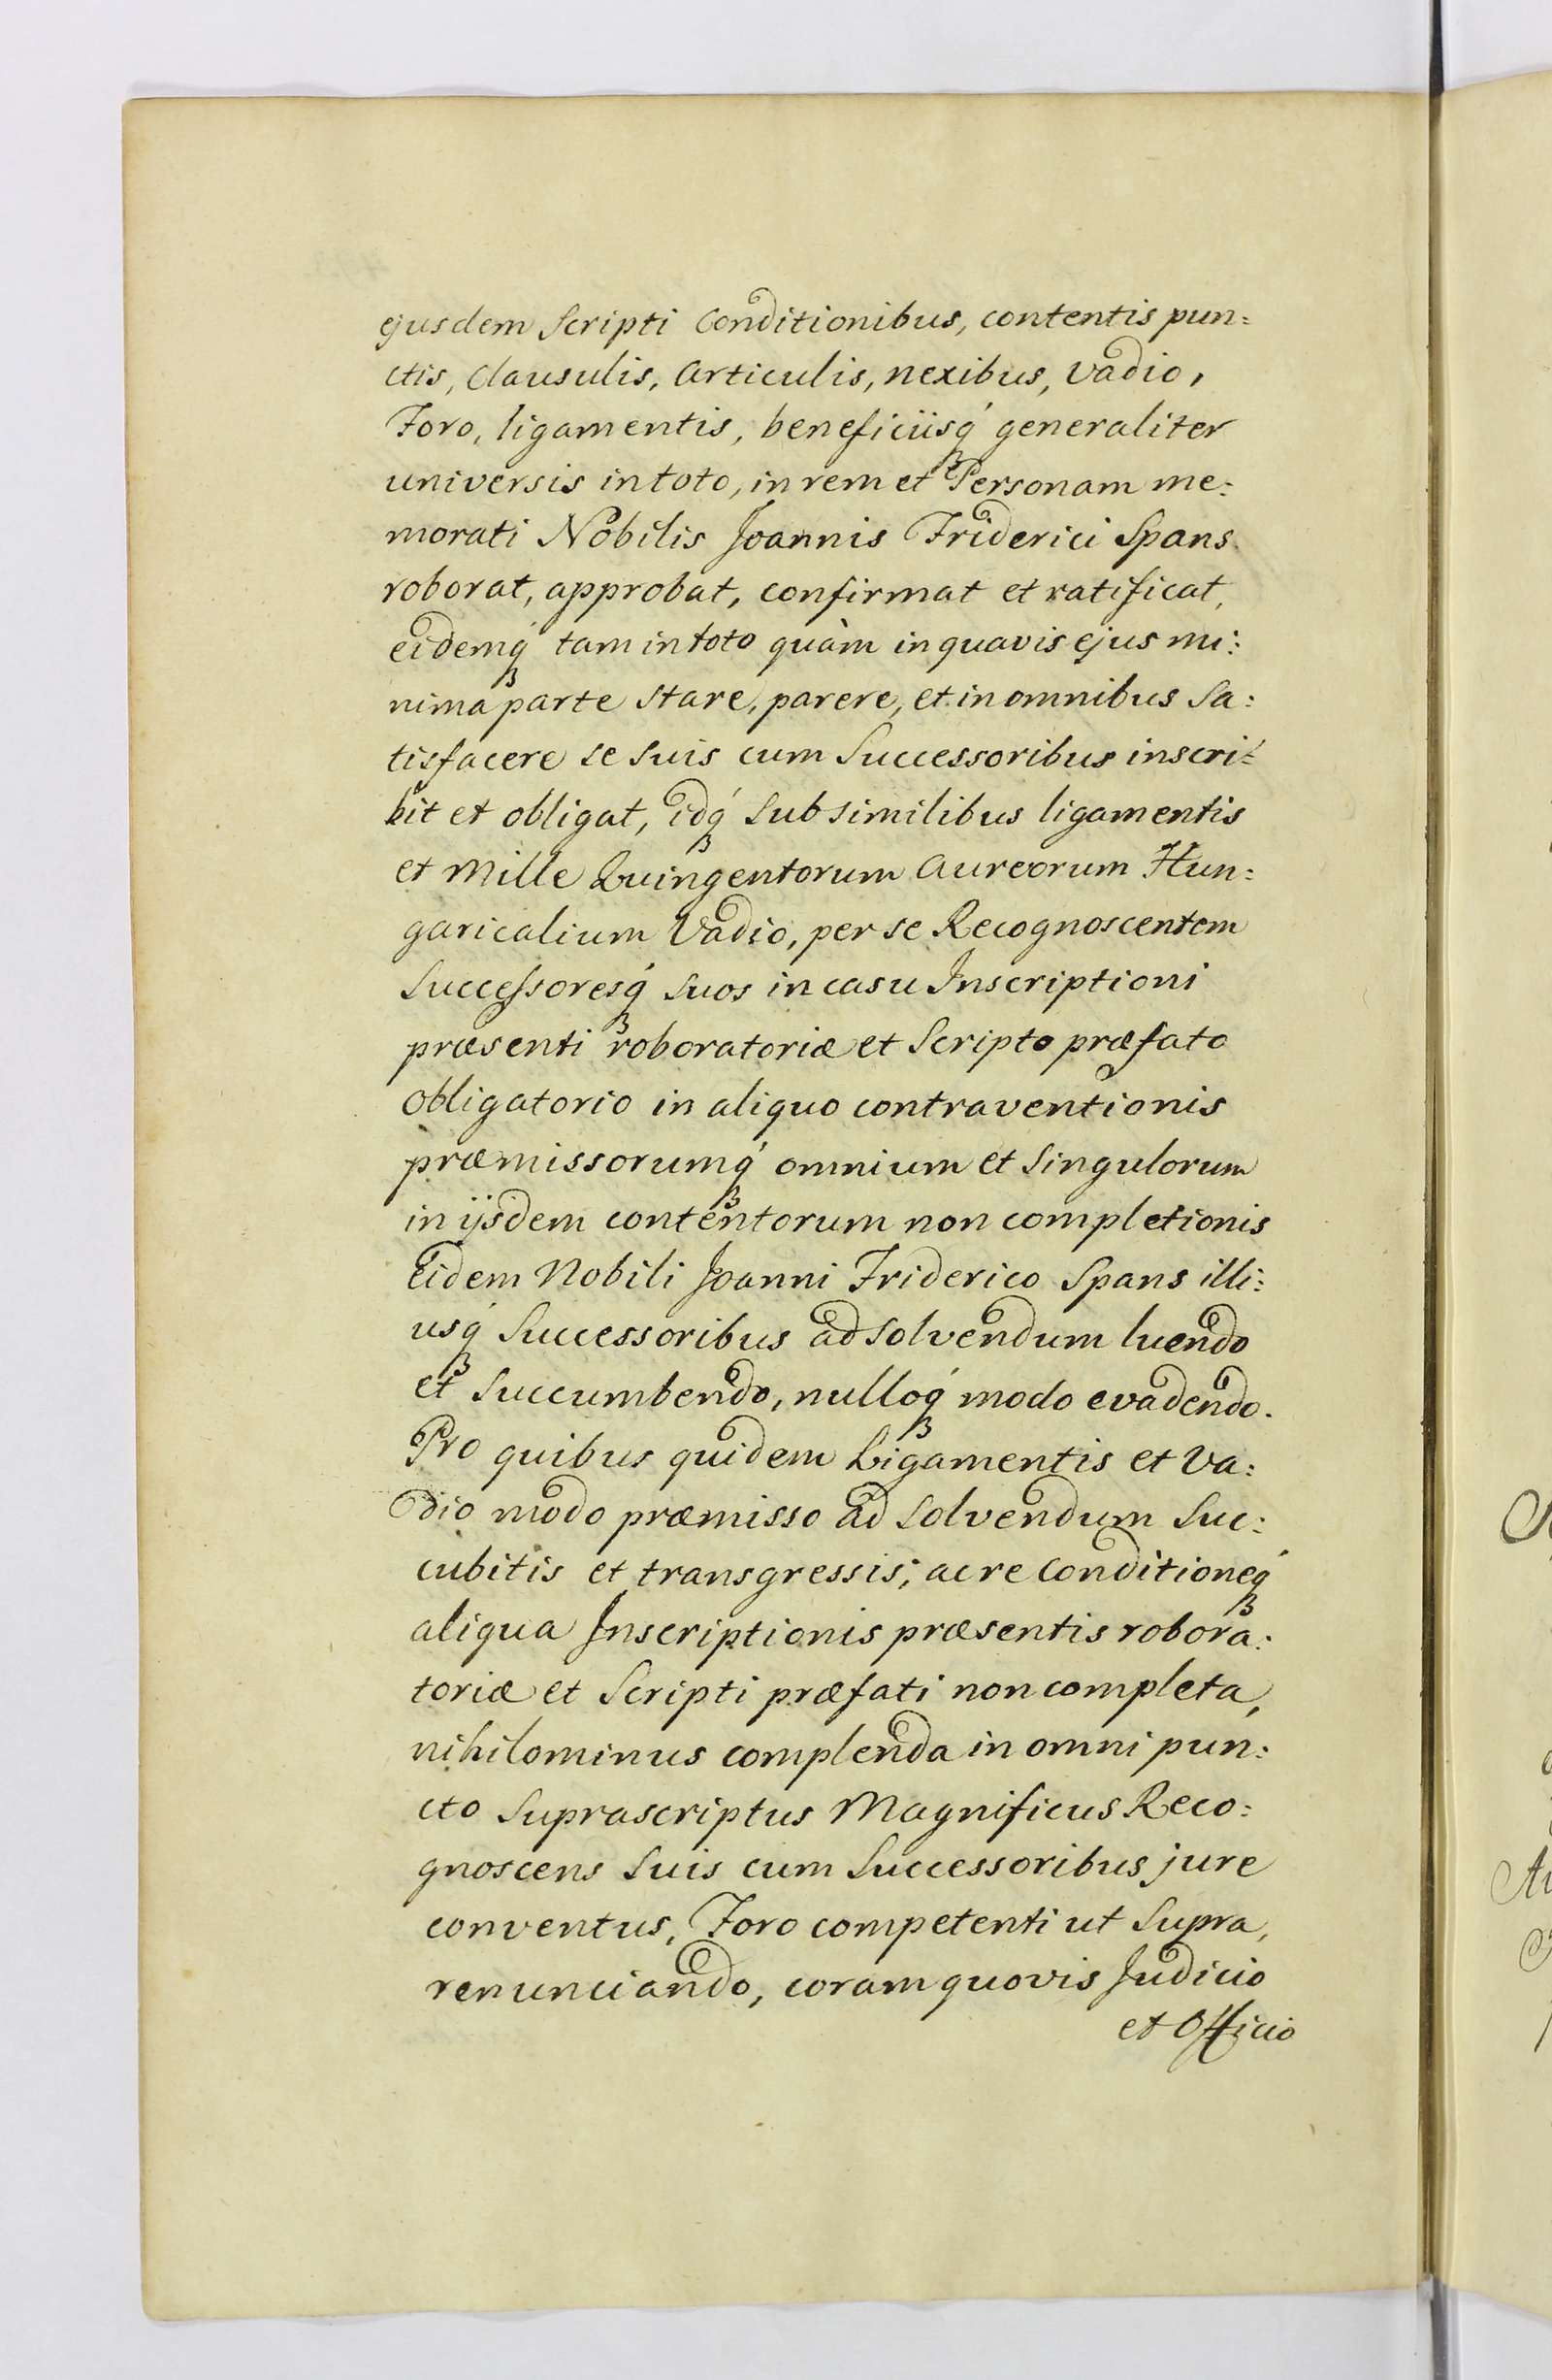 ejusdem Scripti Conditionibus, contentis pun:
ctis, Clausulis, Articulis, nexibus, Vadio,
Foro, ligamentis, beneficiisq́ generaliter
universis in toto, in rem et Personam me:
morati Nobilis Joannis Friderici Spans
roborat, approbat, confirmat et ratificat,
eidemq́ tam in toto quàm in quavis ejus mi:
nima parte stare, parere, et in omnibus Sa:
tisfacere se suis cum Successoribus inscri:
bit et obligat, idq́ sub similibus ligamentis
et Mille Quingentorum Aureorum Hun:
garicalium Vadio, per se Recognoscentem
Successoresq́ suos in casu Inscriptioni
præsenti roboratoriæ et Scripto præfato
Obligatorio in aliquo contraventionis
præmissorumq́ omnium et Singulorum
in ijsdem contentorum non completionis
Eidem Nobili Joanni Friderico Spans illi:
usq́ Successoribus ad solvendum luendo
et Succumbendo, nulloq́ modo evadendo.
Pro quibus quidem Ligamentis et Va:
dio modo præmisso ad solvendum Suc:
cubitis et transgressis, ac re Conditioneq́
aliqua Inscriptionis præsentis robora:
toriæ et Scripti præfati non completa,
nihilominus complenda in omni pun:
cto Suprascriptus Magnificus Reco:
gnoscens Suis cum Successoribus jure
conventus, Foro competenti ut Supra,
renunciando, coram quovis Judicio
et Officio